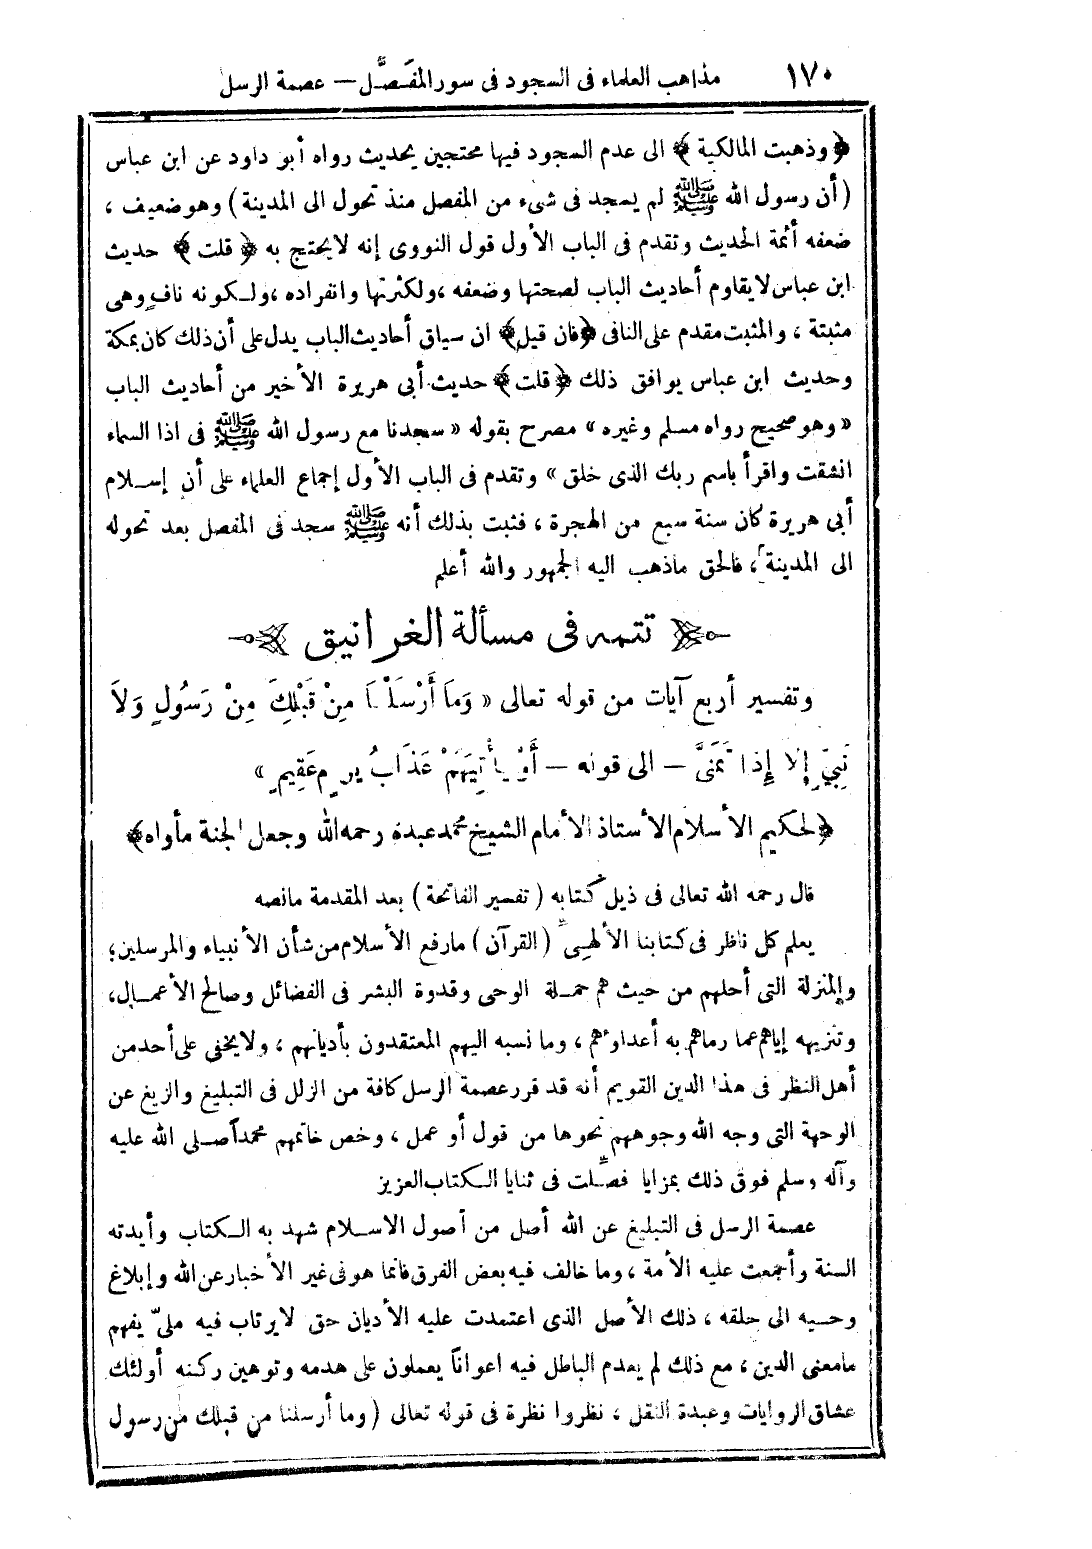 ١٧٠ مذاهب العلماء فى السجود فى سور المفصَّل — عصمة الرسل
﴿ وذهبت المالكية ﴾ الى عدم السجود فيها محتجين بحديث رواه أبو داود عن ابن عباس
(أن رسول الله ﷺ لم يسجد فى شىء من المفصل منذ تحول الى المدينة) وهو ضعيف ،
ضعفه أئمة الحديث وتقدم فى الباب الأول قول النووى إنه لايحتج به ﴿ قلت ﴾ حديث
ابن عباس لا يقاوم أحاديث الباب لصحتها وضعفه ، ولكثرتها وانفراده ، ولكونه نافٍ وهى
مثبتة ، والمثبت مقدم على النافى ﴿ فان قيل ﴾ ان سياق أحاديث الباب يدل على أن ذلك كان بمكة
وحديث ابن عباس يوافق ذلك ﴿ قلت ﴾ حديث أبى هريرة الأخير من أحاديث الباب
« وهو صحيح رواه مسلم وغيره » مصرح بقوله « سجدنا مع رسول الله ﷺ فى اذا السماء
انشقت واقرأ باسم ربك الذى خلق » وتقدم فى الباب الأول إجماع العلماء على أن إسلام
أبى هريرة كان سنة سبع من الهجرة ، فثبت بذلك أنه ﷺ سجد فى المفصل بعد تحوله
الى المدينة ، فالحق ماذهب اليه الجمهور والله أعلم
تتمه فى مسألة الغرانيق
وتفسير أربع آيات من قوله تعالى « وَمَا أَرْسَلْنَا مِنْ قَبْلِكَ مِنْ رَسُولٍ وَلاَ
نَبِيٍّ إِلاَّ إِذَا تَمَنَّى — الى قوله — أَوْ يَأْتِيَهُمْ عَذَابُ يَوْمٍ عَقِيمٍ »
﴿ لحكيم الأسلام الأستاذ الأمام الشيخ محمد عبده رحمه الله وجعل الجنة مأواه ﴾
قال رحمه الله تعالى فى ذيل كتابه ( تفسير الفاتحة ) بعد المقدمة مانصه
يعلم كل ناظر فى كتابنا الألهىّ (القرآن) مارفع الأسلام من شأن الأنبياء والمرسلين؛
والمنزلة التى أحلهم من حيث هم حملة الوحى وقدوة البشر فى الفضائل وصالح الأعمال،
وتنزيهه إياهم عما رماهم به أعداؤهم ، وما نسبه اليهم المعتقدون بأديانهم ، ولا يخفى على أحد من
أهل النظر فى هذا الدين القويم أنه قد قرر عصمة الرسل كافة من الزلل فى التبليغ والزيغ عن
الوجهة التى وجه الله وجوههم نحوها من قول أو عمل ، وخص خاتمهم محمداً صلى الله عليه
وآله وسلم فوق ذلك بمزايا فصِّلت فى ثنايا الكتاب العزيز
عصمة الرسل فى التبليغ عن الله أصل من أصول الاسلام شهد به الكتاب وأيدته
السنة وأجمعت عليه الأمة ، وما خالف فيه بعض الفرق فانما هو فى غير الأخبار عن الله وإبلاغ
وحيه الى خلقه ، ذلك الأصل الذى اعتمدت عليه الأديان حق لا يرتاب فيه ملىّ يفهم
مامعنى الدين ، مع ذلك لم يعدم الباطل فيه اعواناً يعملون على هدمه وتوهين ركنه أولئك
عشاق الروايات وعبدة النقل ، نظروا نظرة فى قوله تعالى ( وما أرسلنا من قبلك من رسول